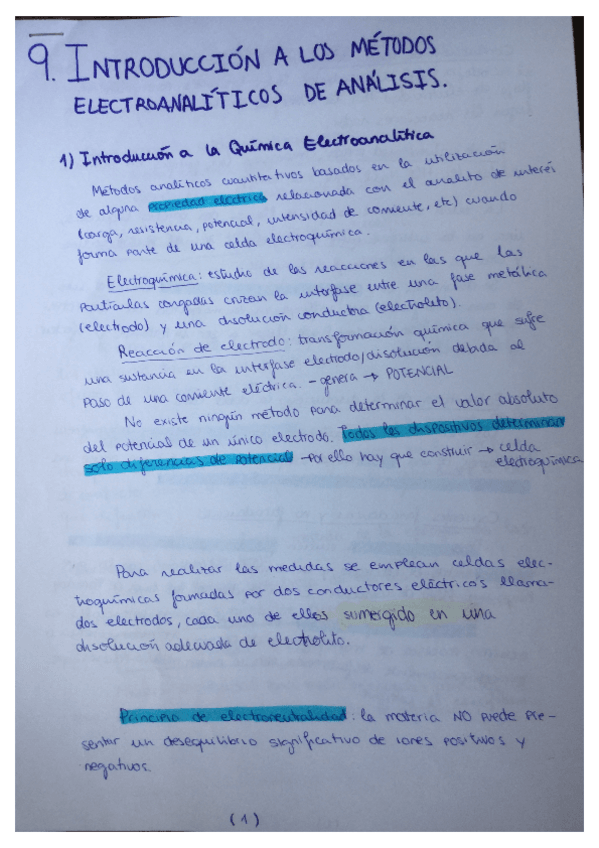 9. INTRODUCCIÓN A LOS MÉTODOS
ELECTROANALÍTICOS DE ANÁLISIS.
1) Introducción a la Química Electroanalítica
Métodos analíticos cuantitativos basados en la utilización
de alguna propiedad eléctrica relacionada con el analito de interés
(carga, resistencia, potencial, intensidad de corriente, etc) cuando
forma parte de una celda electroquímica.
Electroquímica: estudio de las reacciones en las que las
partículas cargadas cruzan la interfase entre una fase metálica
(electrodo) y una disolución conductora (electrolito).
Reacción de electrodo: transformación química que sufre
una sustancia en la interfase electrodo/disolución debida al
paso de una corriente eléctrica. - genera → POTENCIAL
No existe ningún método para determinar el valor absoluto
del potencial de un único electrodo. Todos los dispositivos determinan
solo diferencias de potencial → Por ello hay que construir → celda
electroquímica
Para realizar las medidas se emplean celdas elec-
troquímicas formadas por dos conductores eléctricos llama-
dos electrodos, cada uno de ellos sumergido en una
disolución adecuada de electrolito.
Principio de electroneutralidad: la materia NO puede pre-
sentar un desequilibrio significativo de iones positivos y
negativos.
(1)